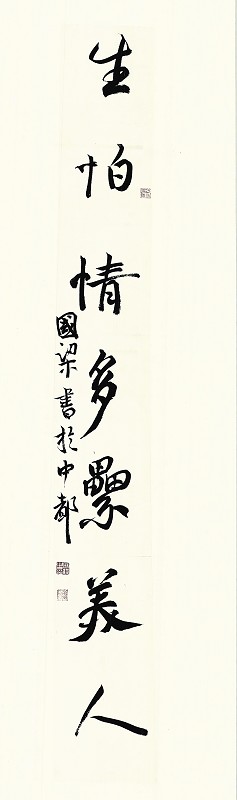 生怕情多纍美人
國梁書於中都